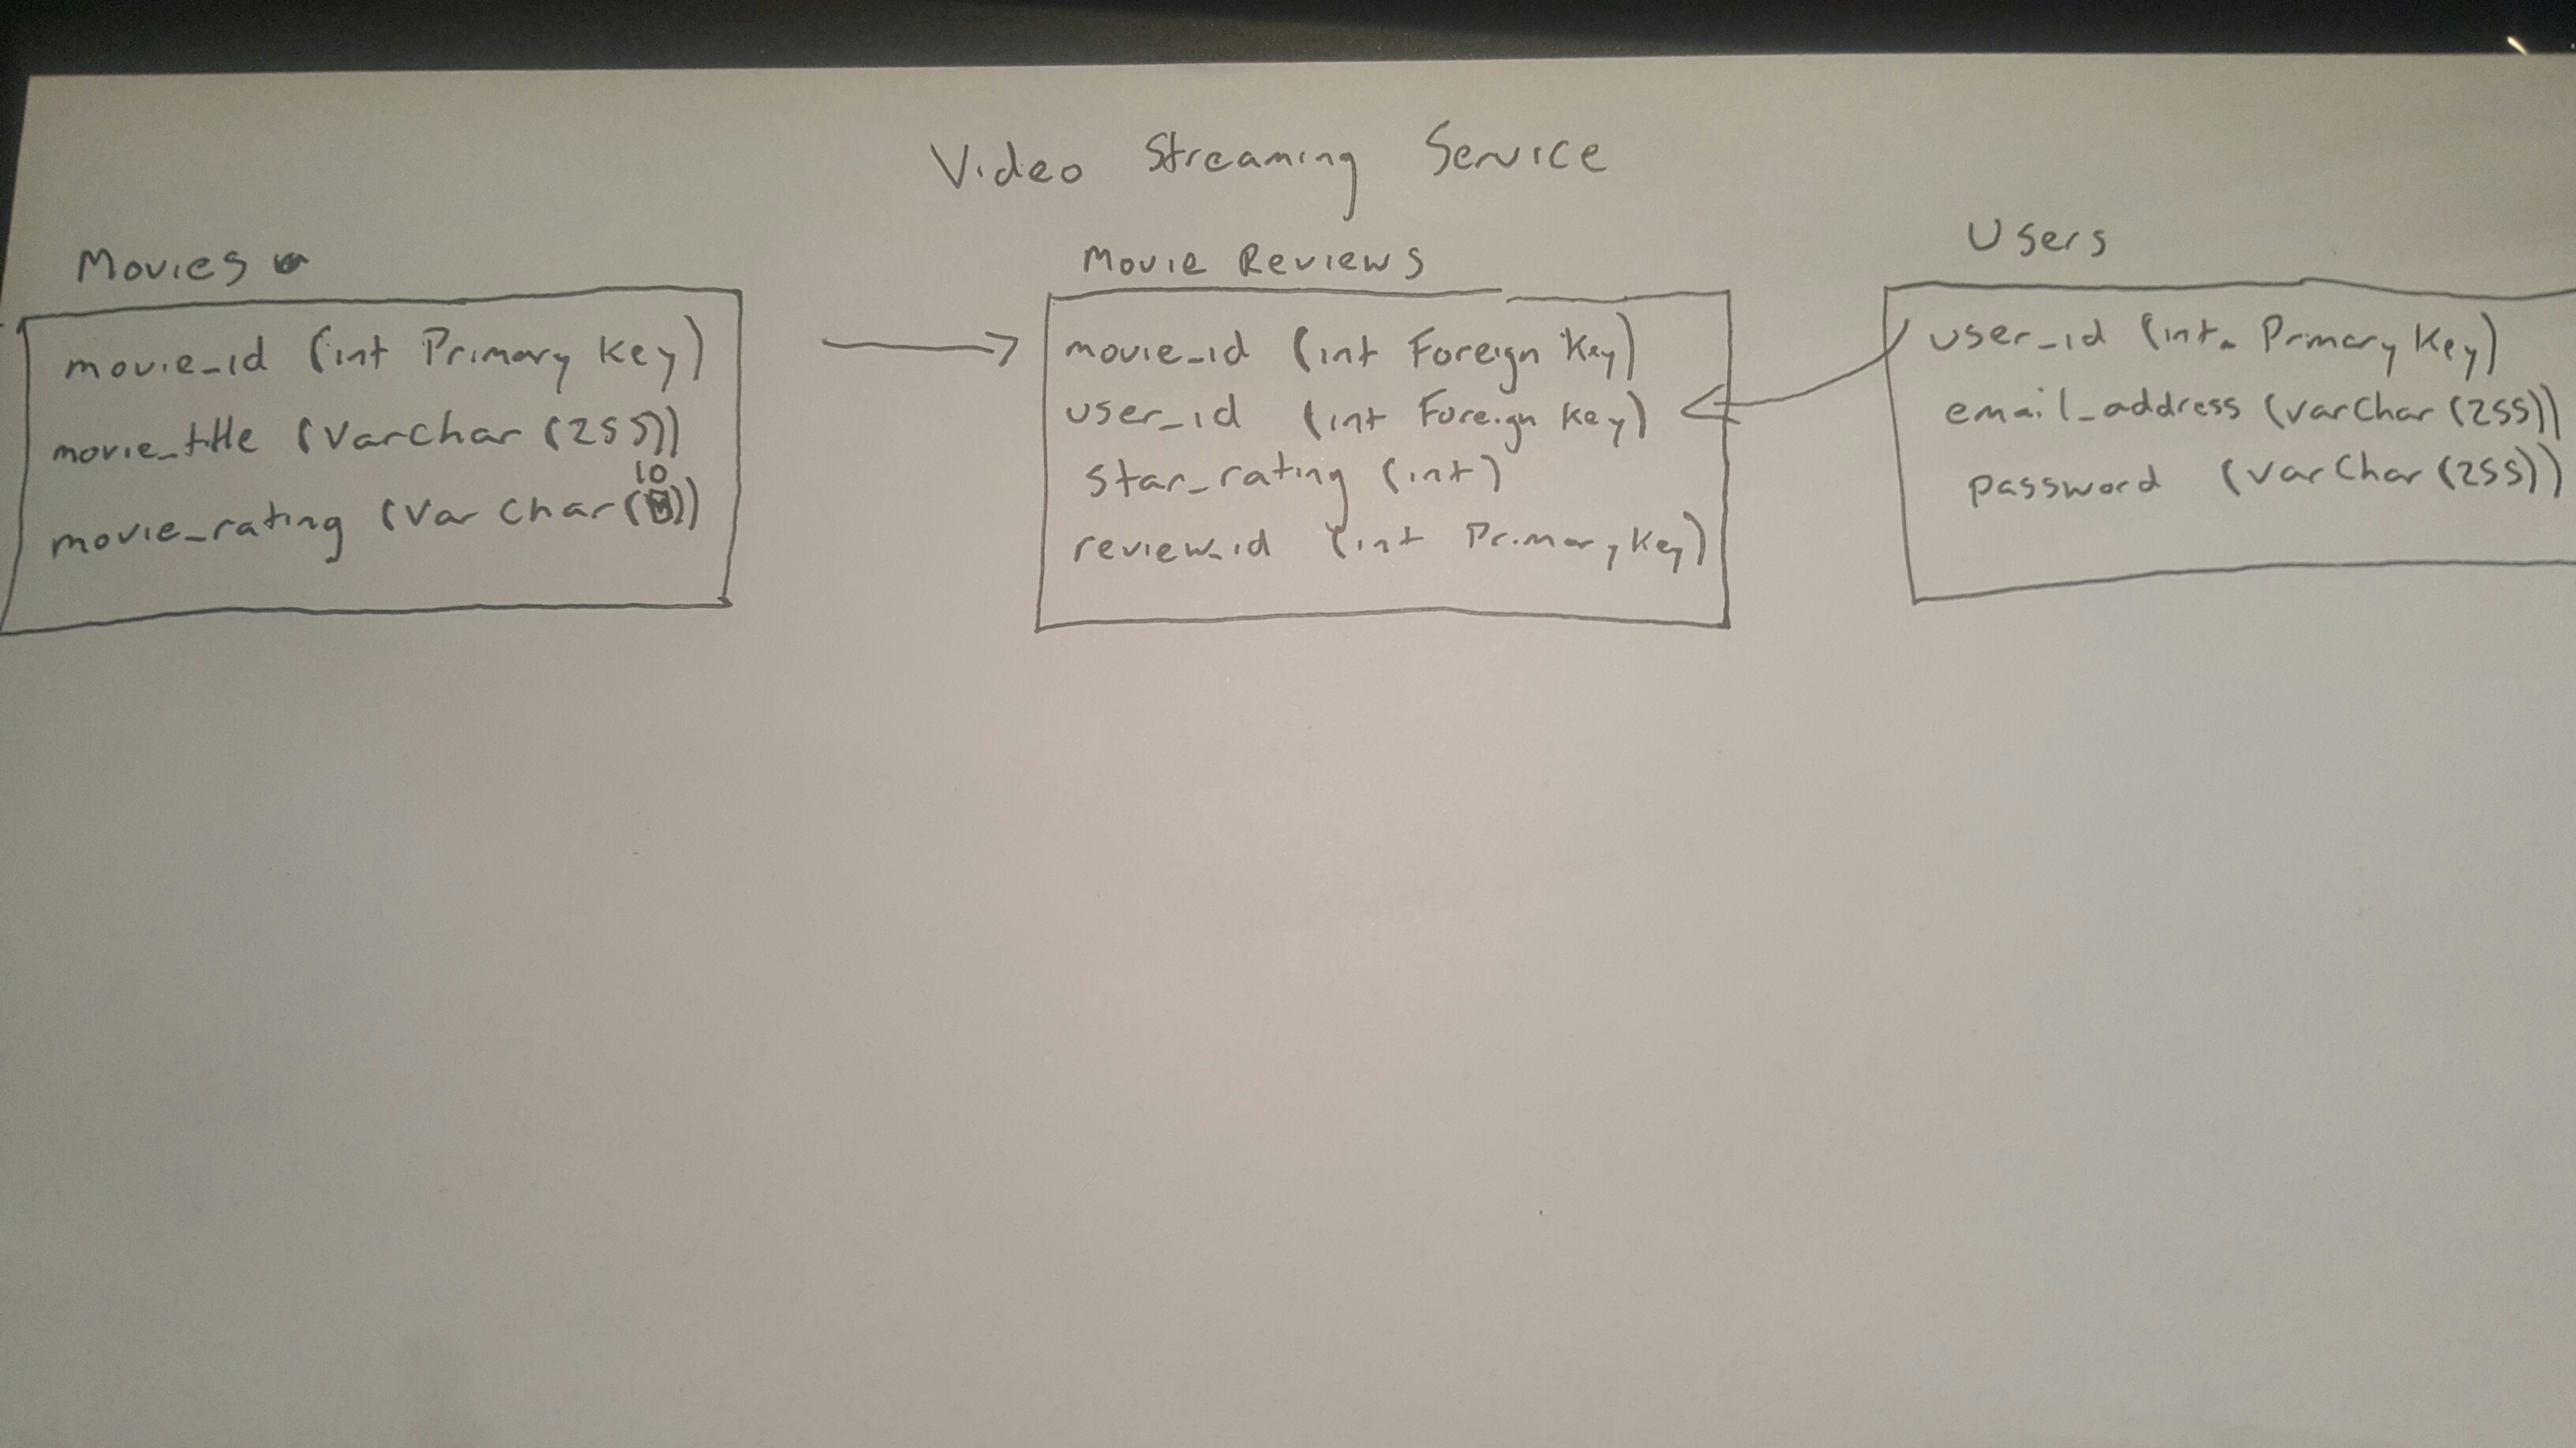 Video Streaming Service
Movies
movie_id (int Primary Key)
movie_title (Varchar (255))
10
movie_rating (Var char ( ))
Movie Reviews
movie_id (int Foreign Key)
user_id (int Foreign Key)
star_rating (int)
review_id (int Primary Key)
Users
user_id (int Primary Key)
email_address (varchar (255))
password (varchar (255))